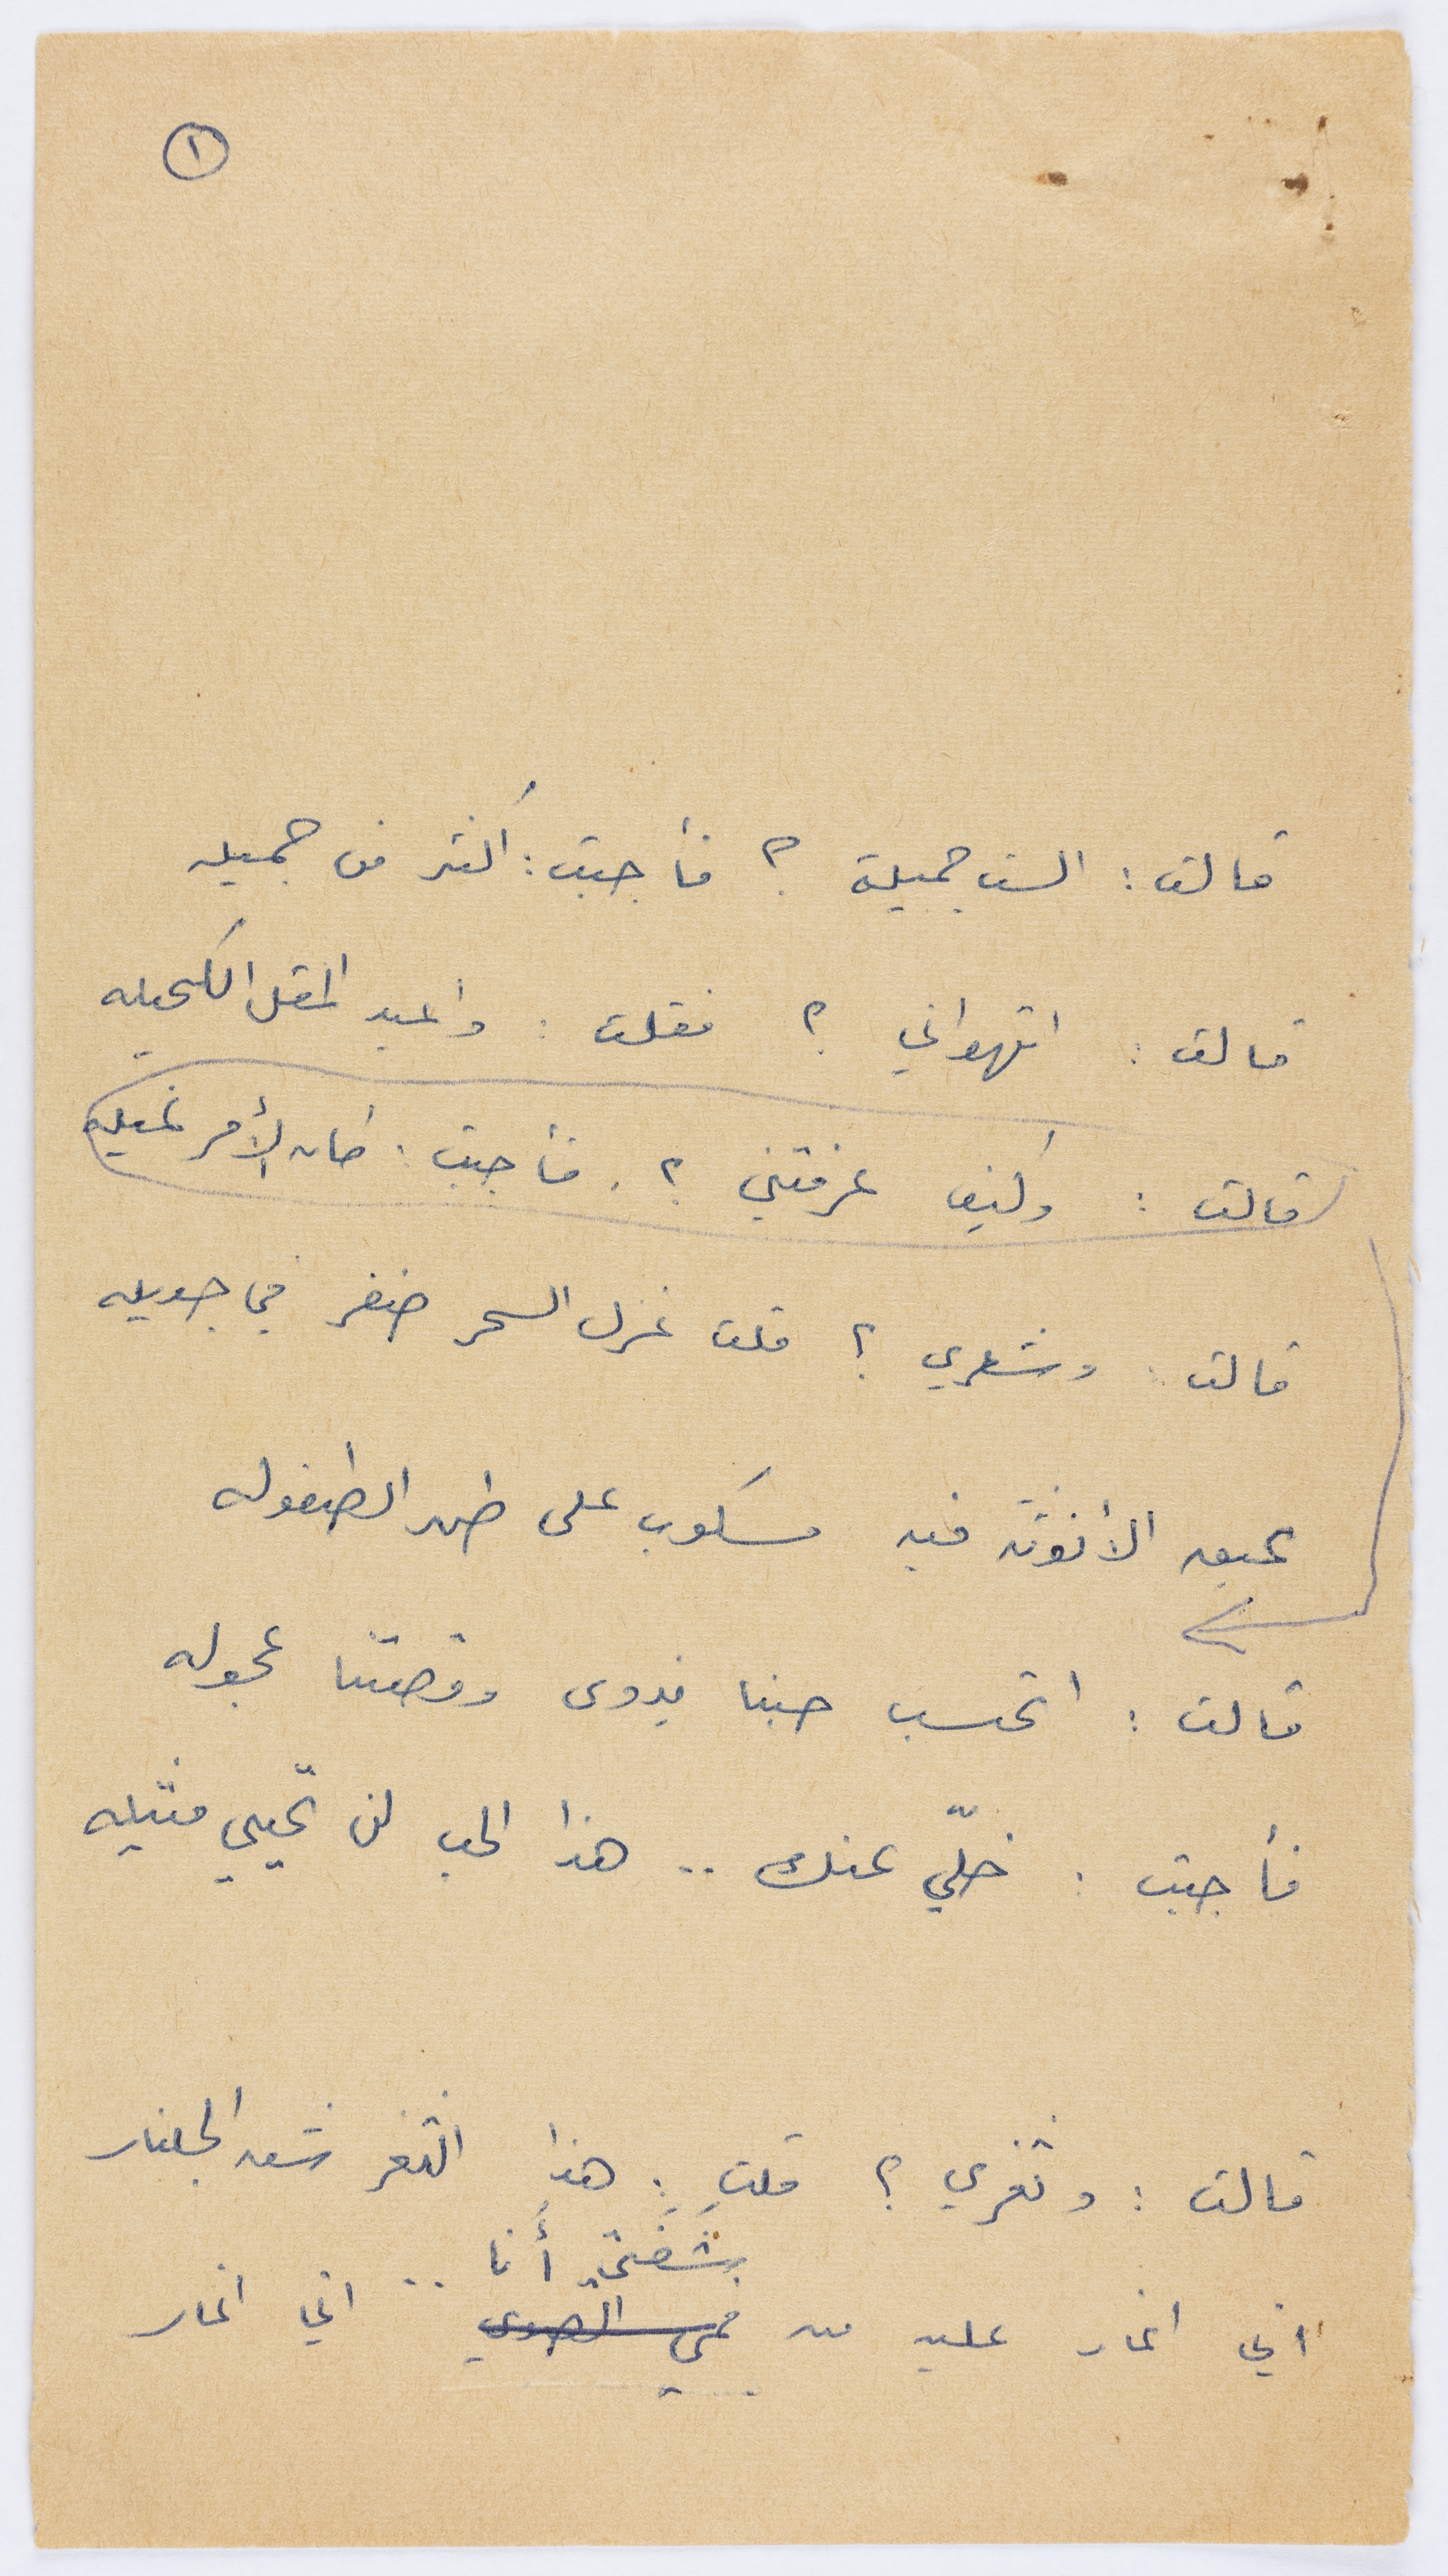 ١
قالت : الست جميلة ؟ فأجبت : أكثر من جميله
قالت : اتهواني ؟ فقلت : واعبد المقل الكحيله
قالت : وكيف عرفتني ؟ . فأجبت : كان الأمر غيله
قالت : وشعري ؟ قلت غزل السحر ضفر في جديله
عبق الأنوثة فيه مسكوب على طهر الطفوله
قالت : اتحسب حبنا يذوى وقصتنا عجوله
فأجبت : خلّي عنك .. هذا الحب لن تحيي مثيله
قالت : وثغري ؟ قلت : هذا الثغر شق الجلنار
شَفَتي أنا
اني اغار عليه من .. اني اغار